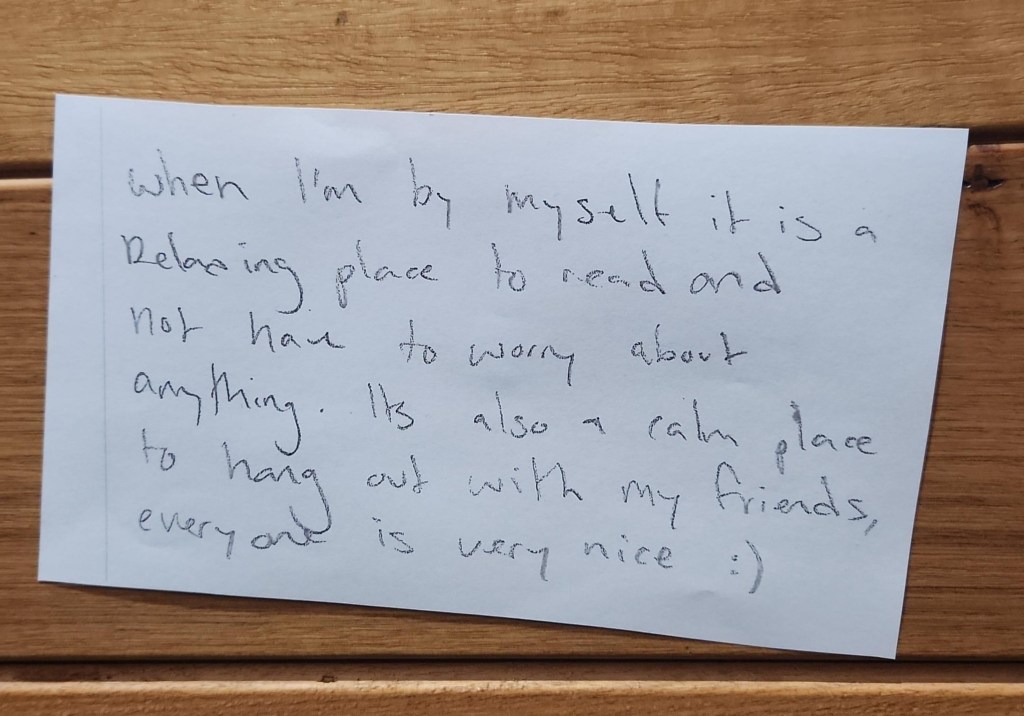 when I'm by myself it is a
Relaxing place to read and
not have to worry about
anything. Its also a calm place
to hang out with my friends,
everyone is very nice :)